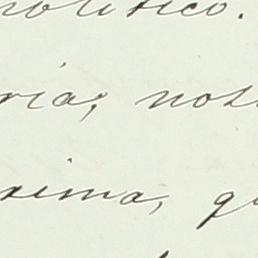 político.
ria; nos
xima, qu